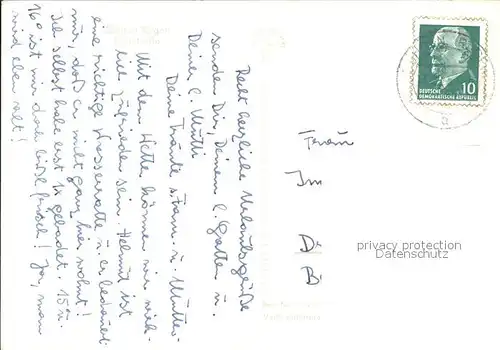 Recht herzliche Urlaubsgrüße
senden Dir, Deinem l. Gatten u.
Deiner l. Mutti
Deine Traute
Mit dem Wetter können wir wirk-
lich zufrieden sein. Helmut ist
eine richtige Wasserratte u. er bedauert
nur, daß er nicht ganz hier wohnt!
Ich selbst habe erst 1x gebadet. 15° u.
16° ist mir doch zu frisch! Ja, man
wird eben alt!
DEUTSCHE
DEMOKRATISCHE REPUBLIK
10
Frau
Im
D
B
privacy protection
Datenschutz